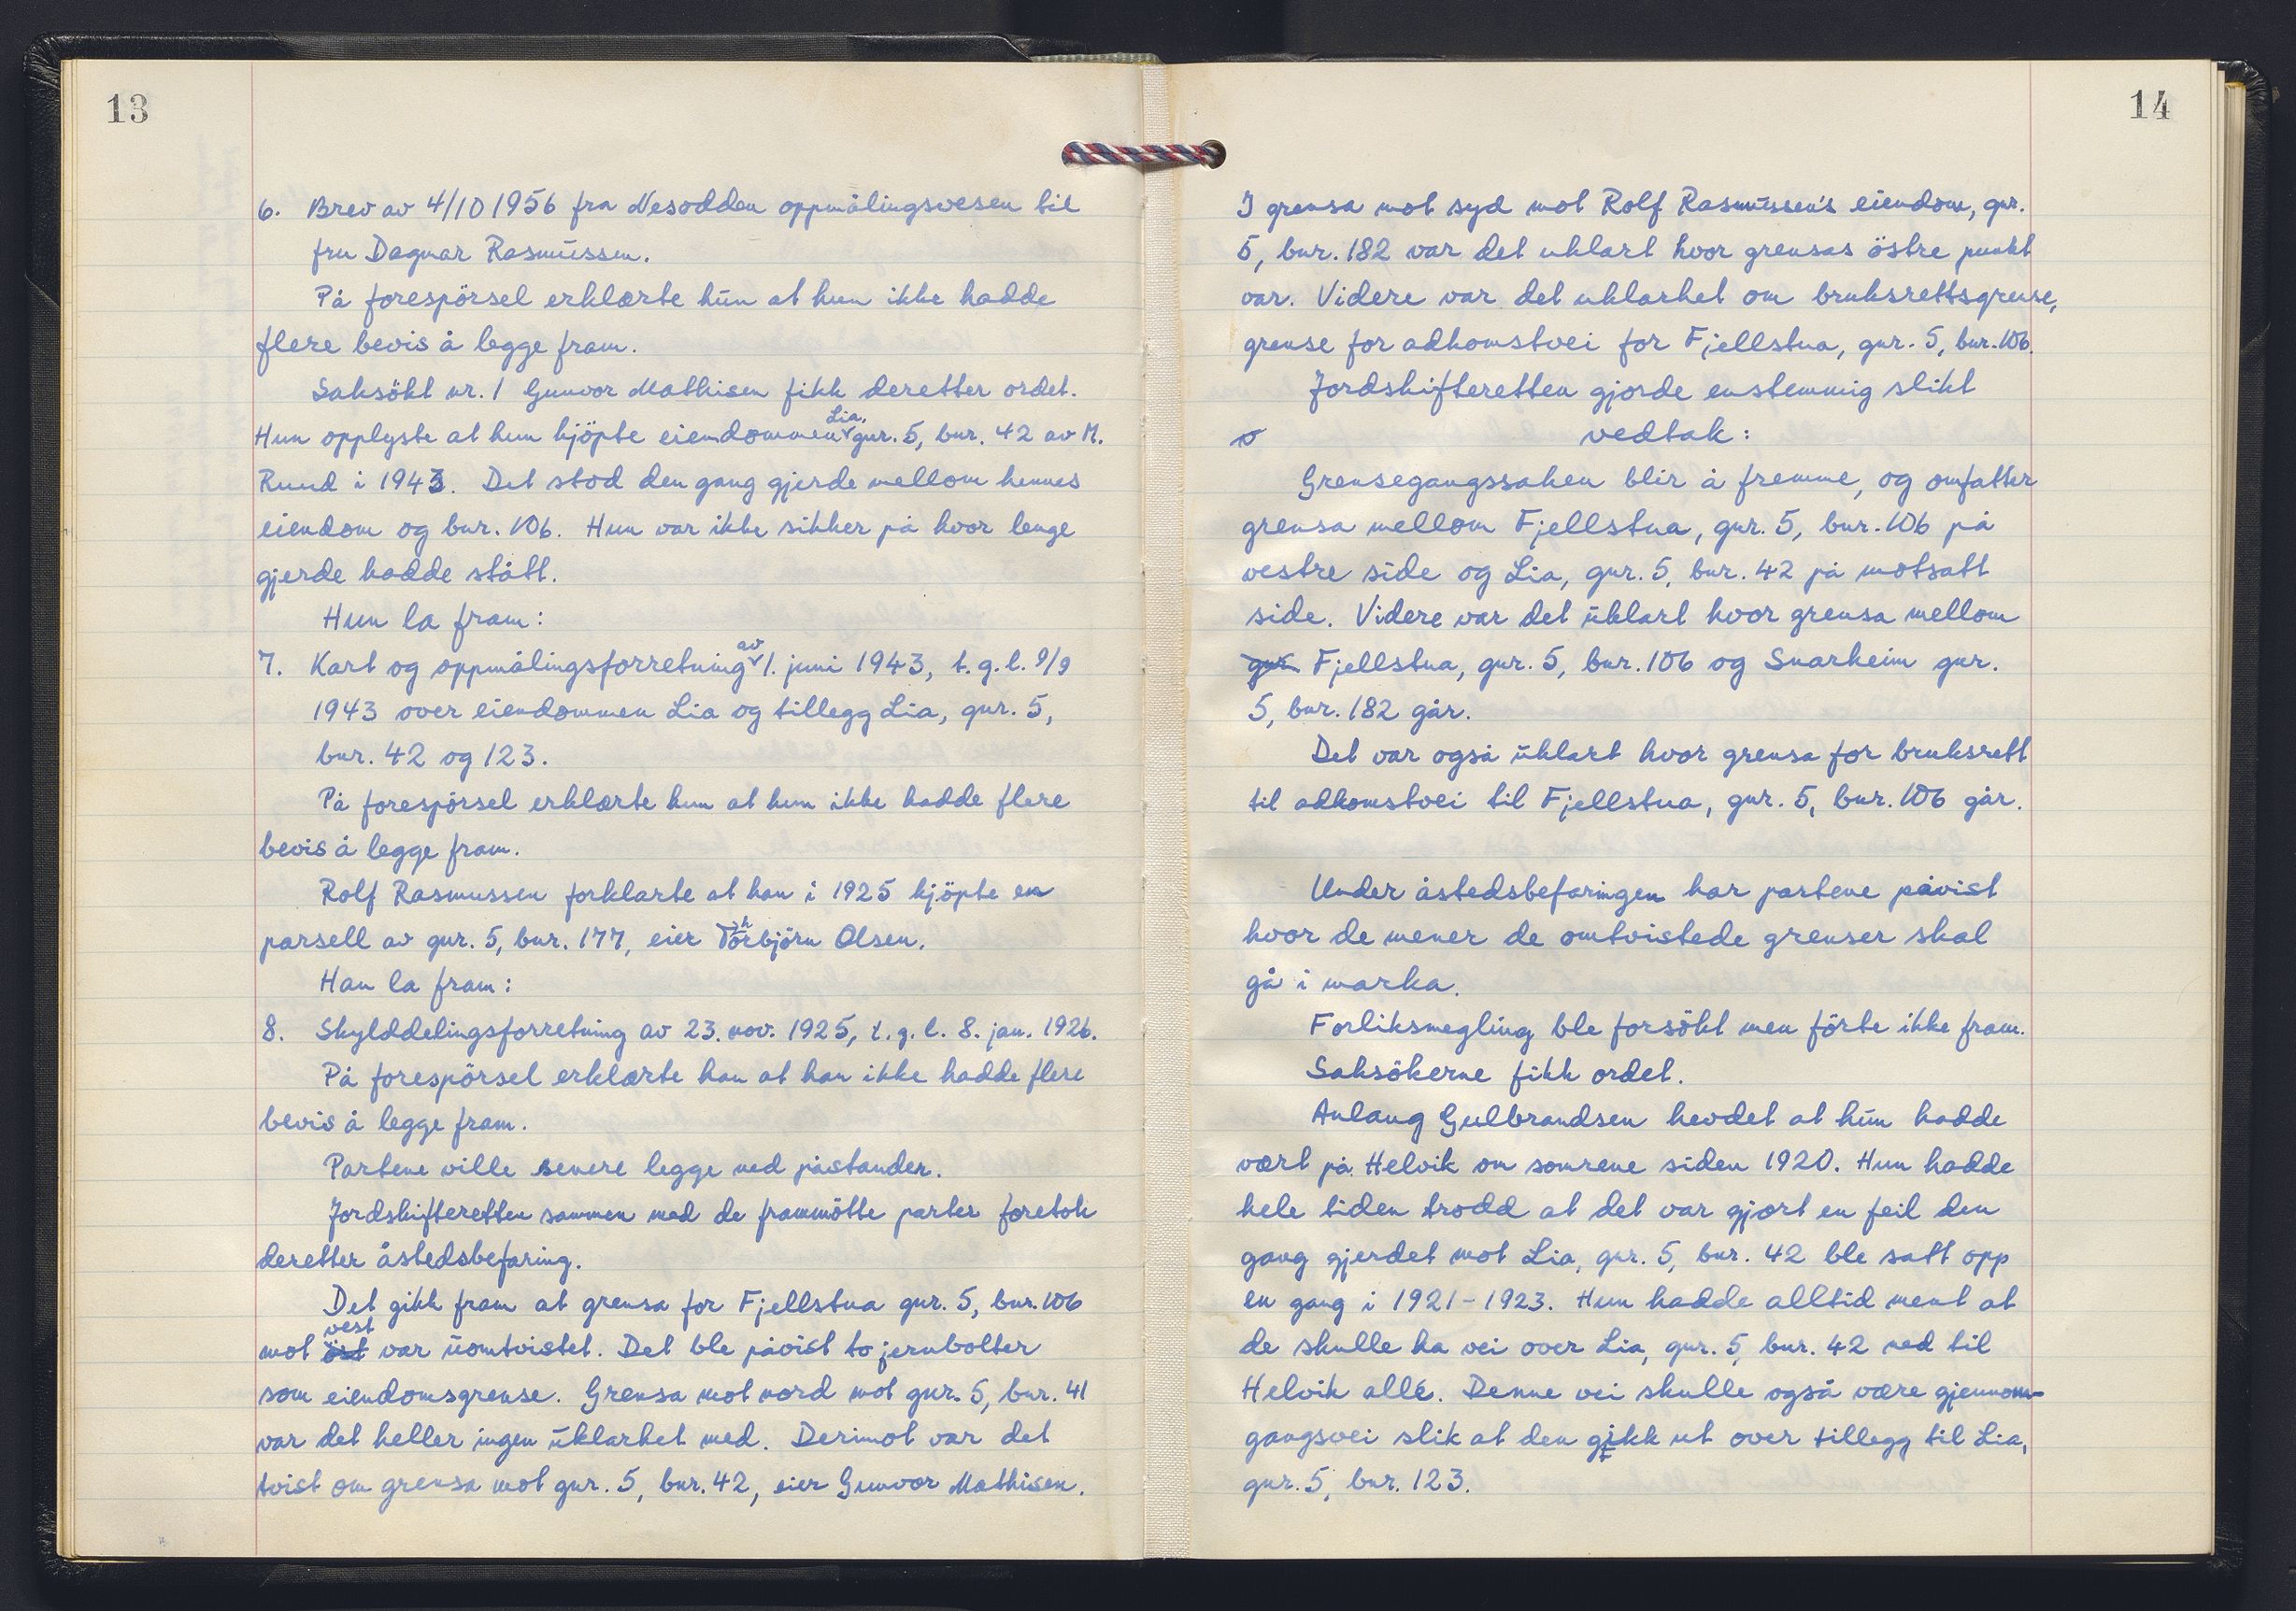 13
6. Brev av 4/10 1956 fra Nesodden oppmålingsvesen til
fru Dagnar Rasmussen.
På forespörsel erklærte hun at hun ikke hadde
flere bevis å legge fram.
Saksökt nr. 1 Gunvor Mathisen fikk deretter ordet.
Hun opplyste at hun kjöpte eiendommen Lia, gnr. 5, bnr. 42 av M.
Ruud i 1943. Det stod den gang gjerde mellom hennes
eiendom og bnr. 106. Hun var ikke sikker på hvor lenge
gjerde hadde stått.
Hun la fram:
7. Kart og oppmålingsforretning av 1. juni 1943, t.g.l. 9/9
1943 over eiendommen Lia og tillegg Lia, gnr. 5,
bnr. 42 og 123.
På forespörsel erklærte hun at hun ikke hadde flere
bevis å legge fram.
Rolf Rasmussen forklarte at han i 1925 kjöpte en
parsell av gnr. 5, bnr. 177, eier Thorbjörn Olsen.
Han la fram:
8. Skylddelingsforretning av 23. nov. 1925, t.g.l. 8. jan. 1926.
På forespörsel erklærte han at han ikke hadde flere
bevis å legge fram.
Partene ville senere legge ned påstander.
Jordskifteretten sammen med de frammötte parter foretok
deretter åstedsbefaring.
Det gikk fram at grensa for Fjellstua gnr. 5, bnr. 106
mot öst vest var uomtvistet. Det ble påvist to jernbolter
som eiendomsgrense. Grensa mot nord mot gnr. 5, bnr. 41
var det heller ingen uklarhet med. Derimot var det
tvist om grensa mot gnr. 5, bnr. 42, eier Gunvor Mathisen.
14
I grensa mot syd mot Rolf Rasmussen's eiendom, gnr.
5, bnr. 182 var det uklart hvor grensas östre punkt
var. Videre var det uklarhet om bruksrettsgrense,
grense for adkomstvei for Fjellstua, gnr. 5, bnr. 106.
Jordskifteretten gjorde enstemmig slikt
vedtak:
Grensegangssaken blir å fremme, og omfatter
grensa mellom Fjellstua, gnr. 5, bnr. 106 på
vestre side og Lia, gnr. 5, bnr. 42 på motsatt
side. Videre var det uklart hvor grensa mellom
gnr. Fjellstua, gnr. 5, bnr. 106 og Snarheim gnr.
5, bnr. 182 går.
Det var også uklart hvor grensa for bruksrett
til adkomstvei til Fjellstua, gnr. 5, bnr. 106 går.
Under åstedsbefaringen har partene påvist
hvor de mener de omtvistede grenser skal
gå i marka.
Forliksmegling ble forsökt men förte ikke fram.
Saksökerne fikk ordet.
Anlaug Gulbrandsen hevdet at hun hadde
vært på Helvik om somrene siden 1920. Hun hadde
hele tiden trodd at det var gjort en feil den
gang gjerdet mot Lia, gnr. 5, bnr. 42 ble satt opp
en gang i 1921-1923. Hun hadde alltid ment at
de skulle ha vei over Lia, gnr. 5, bnr. 42 ned til
Helvik allé. Denne vei skulle også være gjennom-
gangsvei slik at den gikk ut over tillegg til Lia,
gnr. 5, bnr. 123.